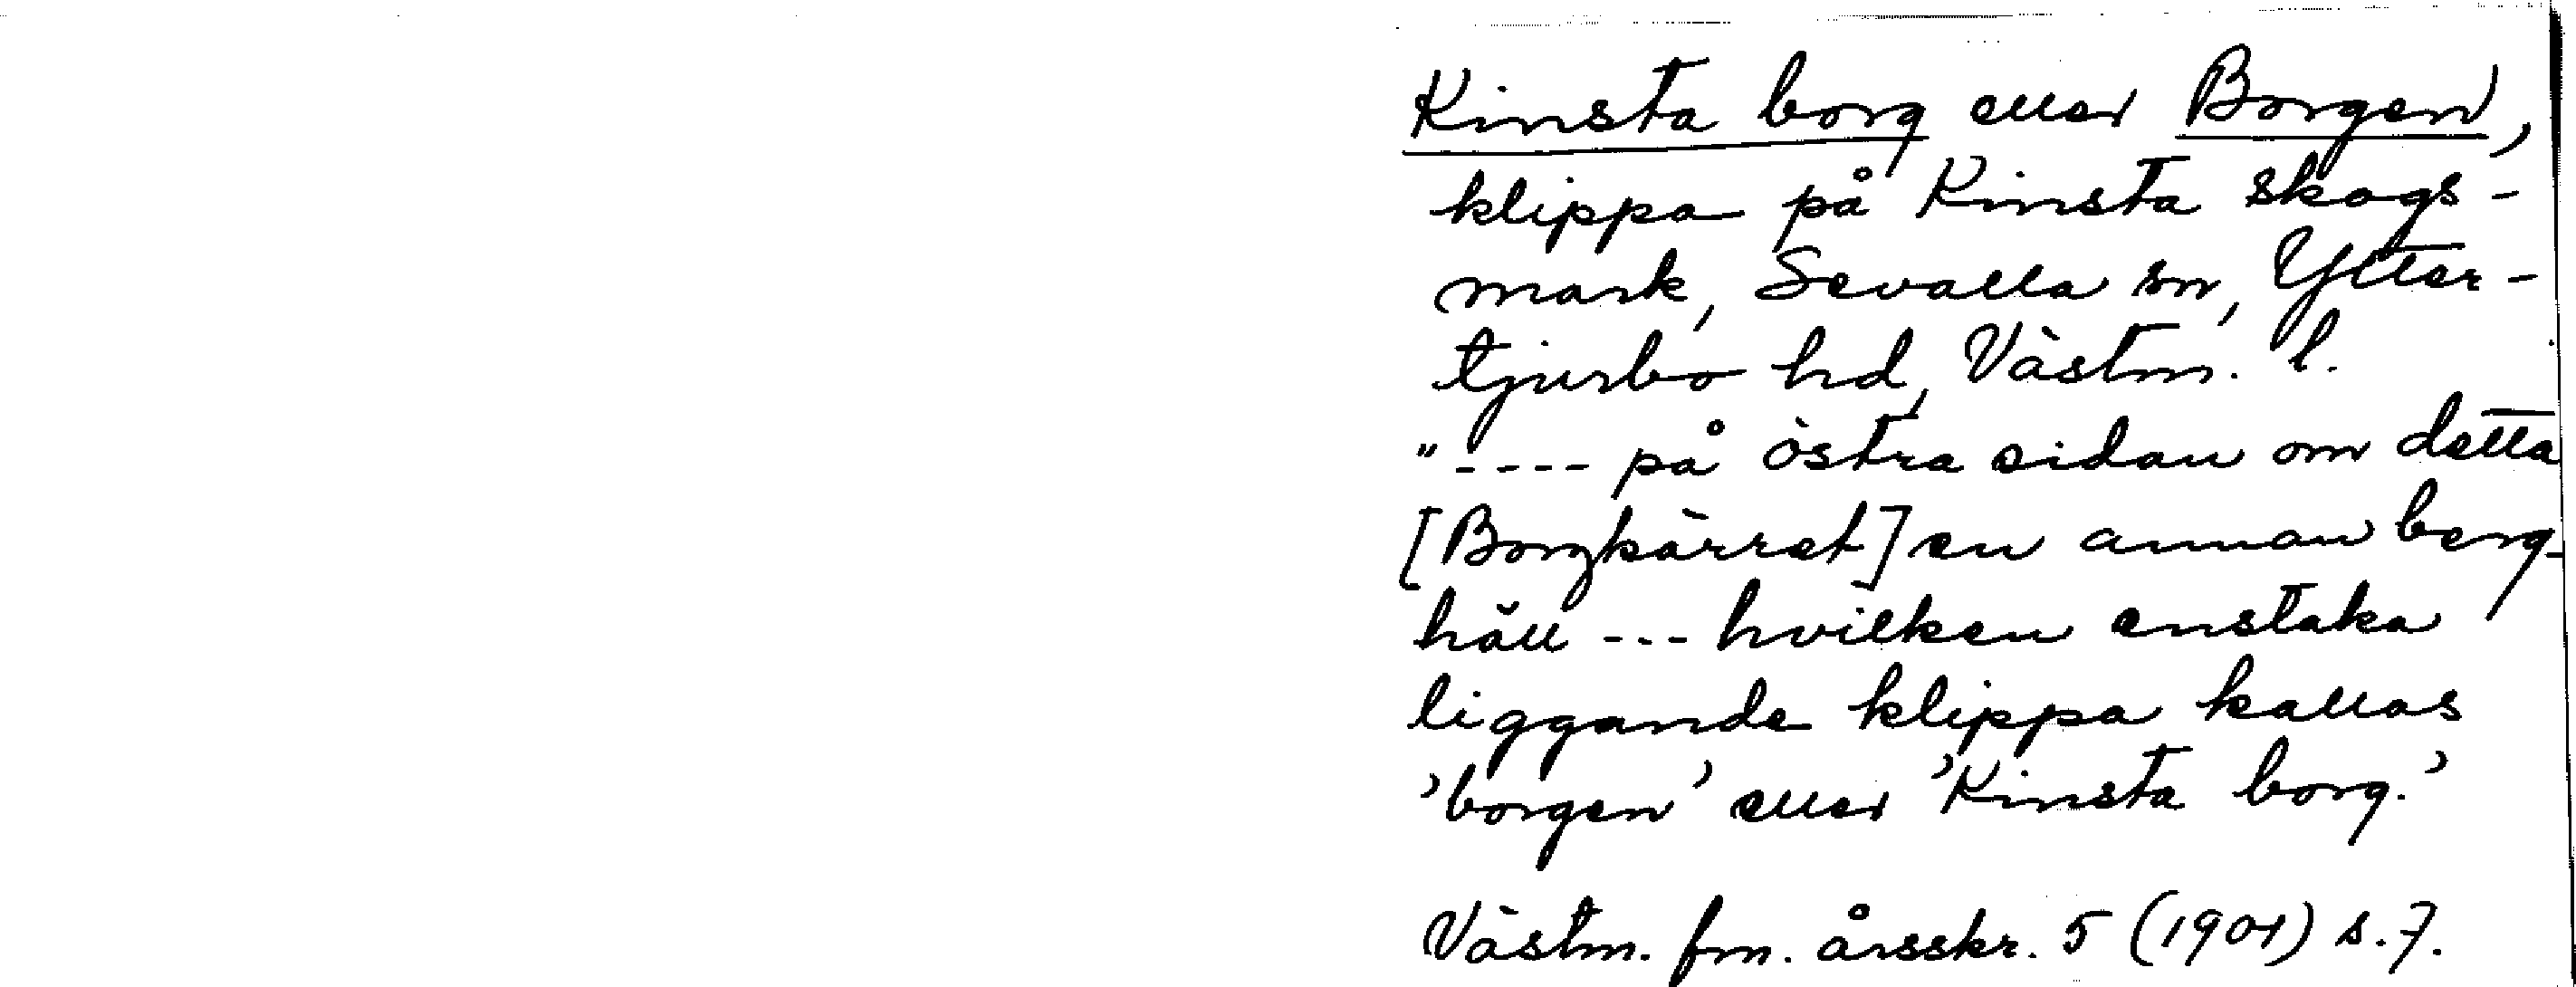 Kinsta borg eller Borgen,
klippa på Kinsta skogs-
mark, Sevalla sn, Ytter-
tjurbo hd, Västm. l.
"---- på östra sidan om detta
[Borgkärret] en annan berg-
häll --- hvilken enstaka
liggande klippa kallas
'borgen' eller 'Kinsta borg.'
Västm. fm. årsskr. 5 (1901) s. 7.